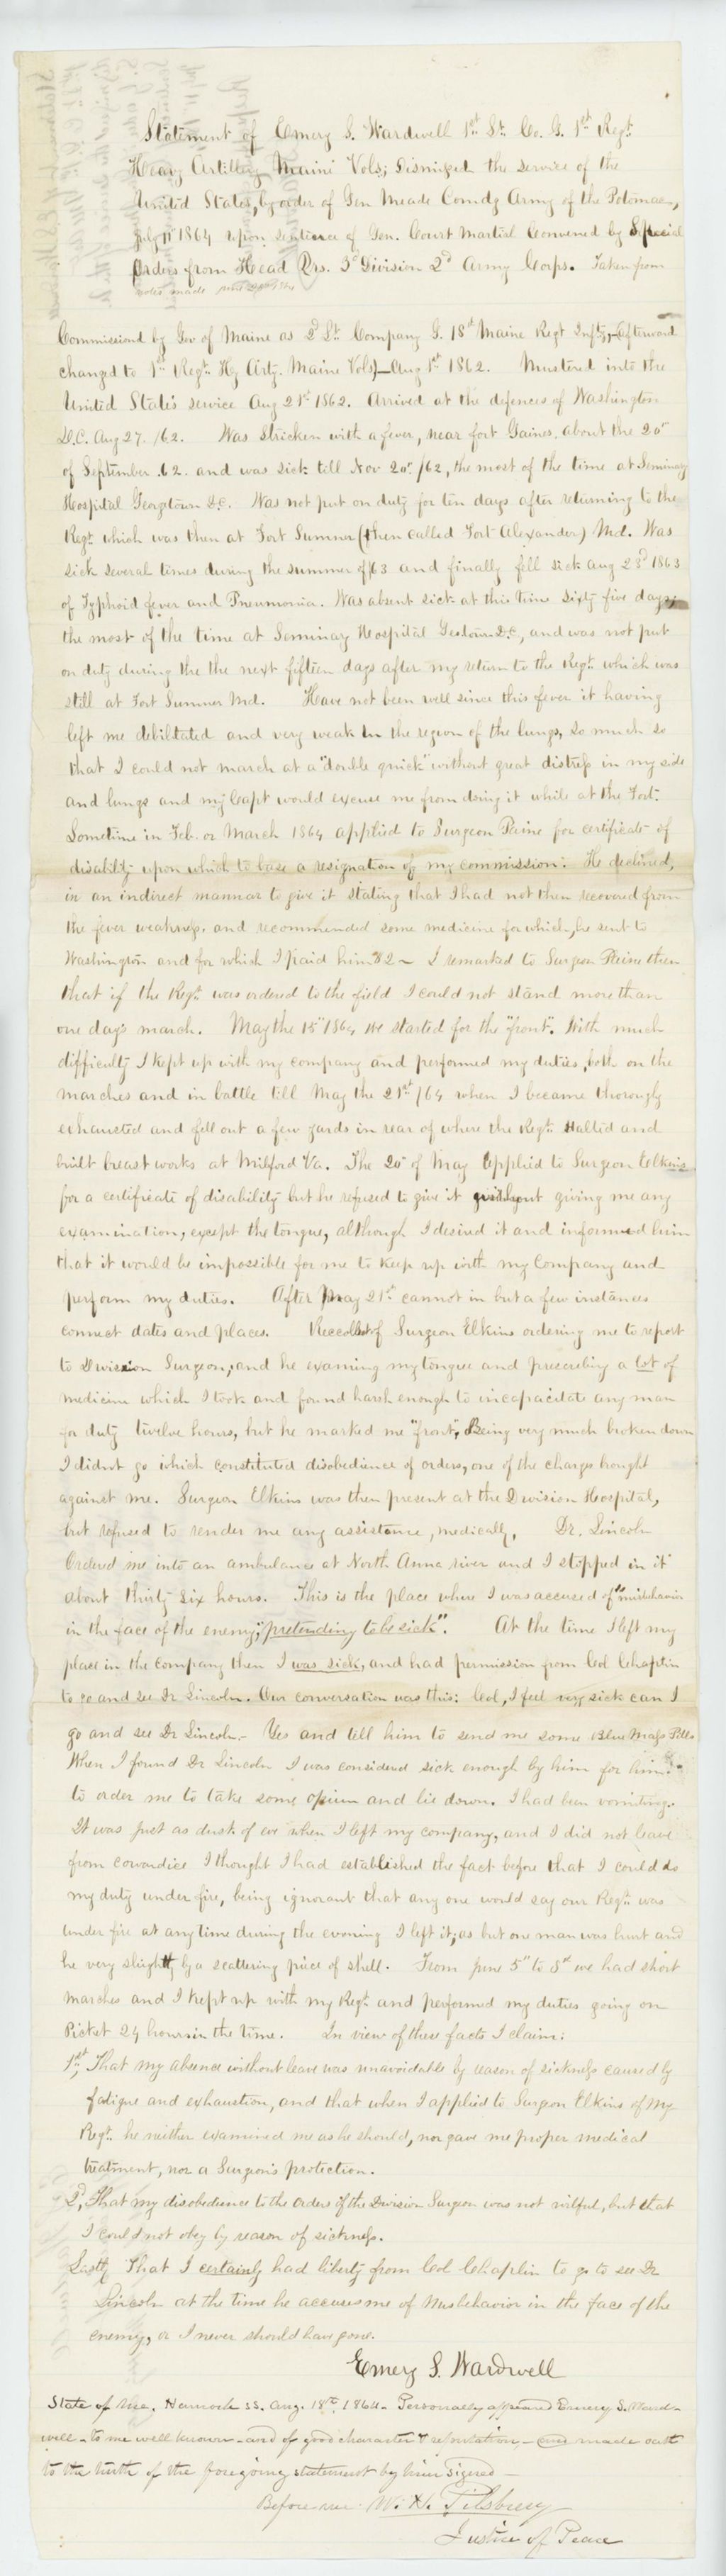 Statement of Emery S. Wardwell 1st Lt. Co. G. 1st Regt.
Heavy Artillery Maine Vols; Dismissed the service of the
United States, by order of Gen Meade Comdg Army of the Potomac,
July 11" 1864 upon sentence of Gen. Court Martial Convened by Special
Orders from Head Qrs. 3d Division 2d Army Corps. Taken from
notes made
Commissioned by Gov of Maine as 2d Lt. Company G. 18th Maine Regt Infty, (afterward
changed to 1st Regt. Hy Arty. Maine Vols)—Aug 1st 1862. Mustered into the
United State's service Aug 21st 1862. Arrived at the defences of Washington
D.C. Aug 27. /62. Was stricken with a fever, near fort Gaines, about the 20"
of September .62. and was sick till Nov 20" /62, the most of the time at Seminary
Hospital Georgetown D.C. Was not put on duty for ten days after returning to the
Regt. which was then at Fort Sumner (then called Fort Alexander) Md. Was
sick several times during the summer of /63 and finally fell sick Aug 23d 1863
of Typhoid fever and Pneumonia. Was absent sick at this time sixty five days;
the most of the time at Seminary Hospital Geotown D.C., and was not put
on duty during the the next fifteen days after my return to the Regt. which was
still at Fort Sumner Md. Have not been well since this fever it having
left me debilitated and very weak in the region of the lungs, so much so
that I could not march at a "double quick" without great distress in my side
and lungs and my Capt would excuse me from doing it while at the Fort.
Sometime in Feb. or March 1864 applied to Surgeon Paine for certificate of
disability upon which to base a resignation of my commission. He declined,
in an indirect mannar to give it stating that I had not then recovered from
the fever weakness, and recommended some medicine for which, he sent to
Washington and for which I paid him $2— I remarked to Surgeon Paine then
that if the Regt. was ordered to the field I could not stand more than
one day's march. May the 15" 1864 we started for the "front". With much
difficulty I kept up with my company and performed my duties, both on the
marches and in battle till May the 21st /64 when I became thorougly
exhausted and fell out a few yards in rear of where the Regt. Halted and
built breast works at Milford Va. The 20" of May applied to Surgeon Elkins
for a certificate of disability but he refused to give it without giving me any
examination, except the tongue, although I desired it and informed him
that it would be impossible for me to keep up with my Company and
perform my duties. After May 21st cannot in but a few instances
connect dates and places. Reccollect of Surgeon Elkins ordering me to report
to Division Surgeon, and he examing my tongue and prescribing a lot of
medicine which I took and found harsh enough to incapacitate any man
for duty twelve hours, but he marked me "front", Being very much broken down
I didnt go which constituted disobedience of orders, one of the charges brought
against me. Surgeon Elkins was then present at the Division Hospital,
but refused to render me any assistance, medically. Dr. Lincoln
Ordered me into an ambulance at North Anna river and I stopped in it
about thirty six hours. This is the place where I was accused of "misbehavior
in the face of the enemy," "pretending to be sick". At the time I left my
place in the company then I was sick, and had permission from Col Chaplin
to go and see Dr Lincoln. Our conversation was this: Col, I feel very sick can I
go and see Dr Lincoln.- Yes and tell him to send me some Blue Mass Pills
When I found Dr Lincoln I was considered sick enough by him for him
to order me to take some opium and lie down. I had been vomiting.
It was just as dusk of eve when I left my company, and I did not leave
from cowardice I thought I had established the fact before that I could do
my duty under fire, being ignorant that any one would say our Regt. was
under fire at any time during the evening I left it; as but one man was hurt and
he very slightly by a scattering piece of shell. From June 5" to 8th we had short
marches and I kept up with my Regt. and performed my duties going on
Picket 24 hours in the time. In view of these facts I claim:
1st, That my absence without leave was unavoidable by reason of sickness caused by
fatigue and exhaustion, and that when I applied to Surgeon Elkins of My
Regt. he neither examined me as he should, nor gave me proper medical
treatment, nor a Surgeon's protection.
2d, That my disobedience to the orders of the Division Surgeon was not wilful, but that
I could not obey by reason of sickness.
Lastly That I certainly had liberty from Col Chaplin to go to see Dr
Lincoln at the time he accuses me of Misbehavior in the face of the
enemy, or I never should have gone.
Emery S. Wardwell
State of Me. Hancock ss. Aug. 18th 1864- Personally appeared Emery S. Ward-
well - to me well known - and of good character & reputation - and made oath
to the truth of the foregoing statement by him signed -
Before me W. H. Pilsbury
Justice of Peace